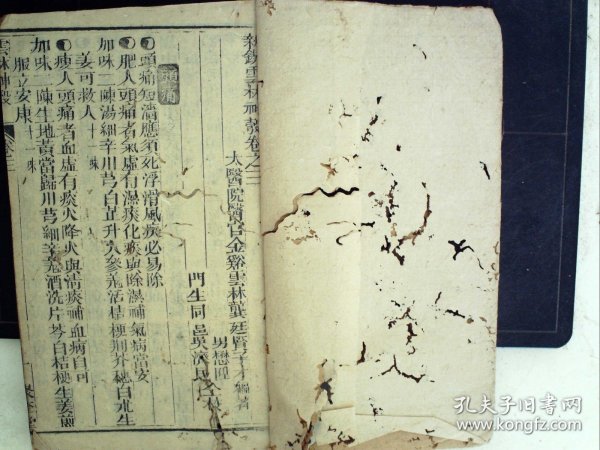 新鋟雲林神彀卷之三
太醫院醫官金谿雲林龔廷賢子才編著
男懋陞
門生同邑吳濟民仝校
頭痛
頭痛短濇應須死浮滑風痰必易除
肥人頭痛者氣虛有濕痰化痰與除濕補氣病當安
加味二陳湯細辛川芎白芷升人參羌活桔梗荆芥穗白朮生
姜可救人十一味
瘦人頭痛者血虛有痰火降火與清痰補血病自可
加味二陳生地黃當歸川芎細辛羌酒洗片芩白桔梗生姜煎
服立安康十一味
雲林神彀
卷三
孔夫子旧书网
www.kongfz.com